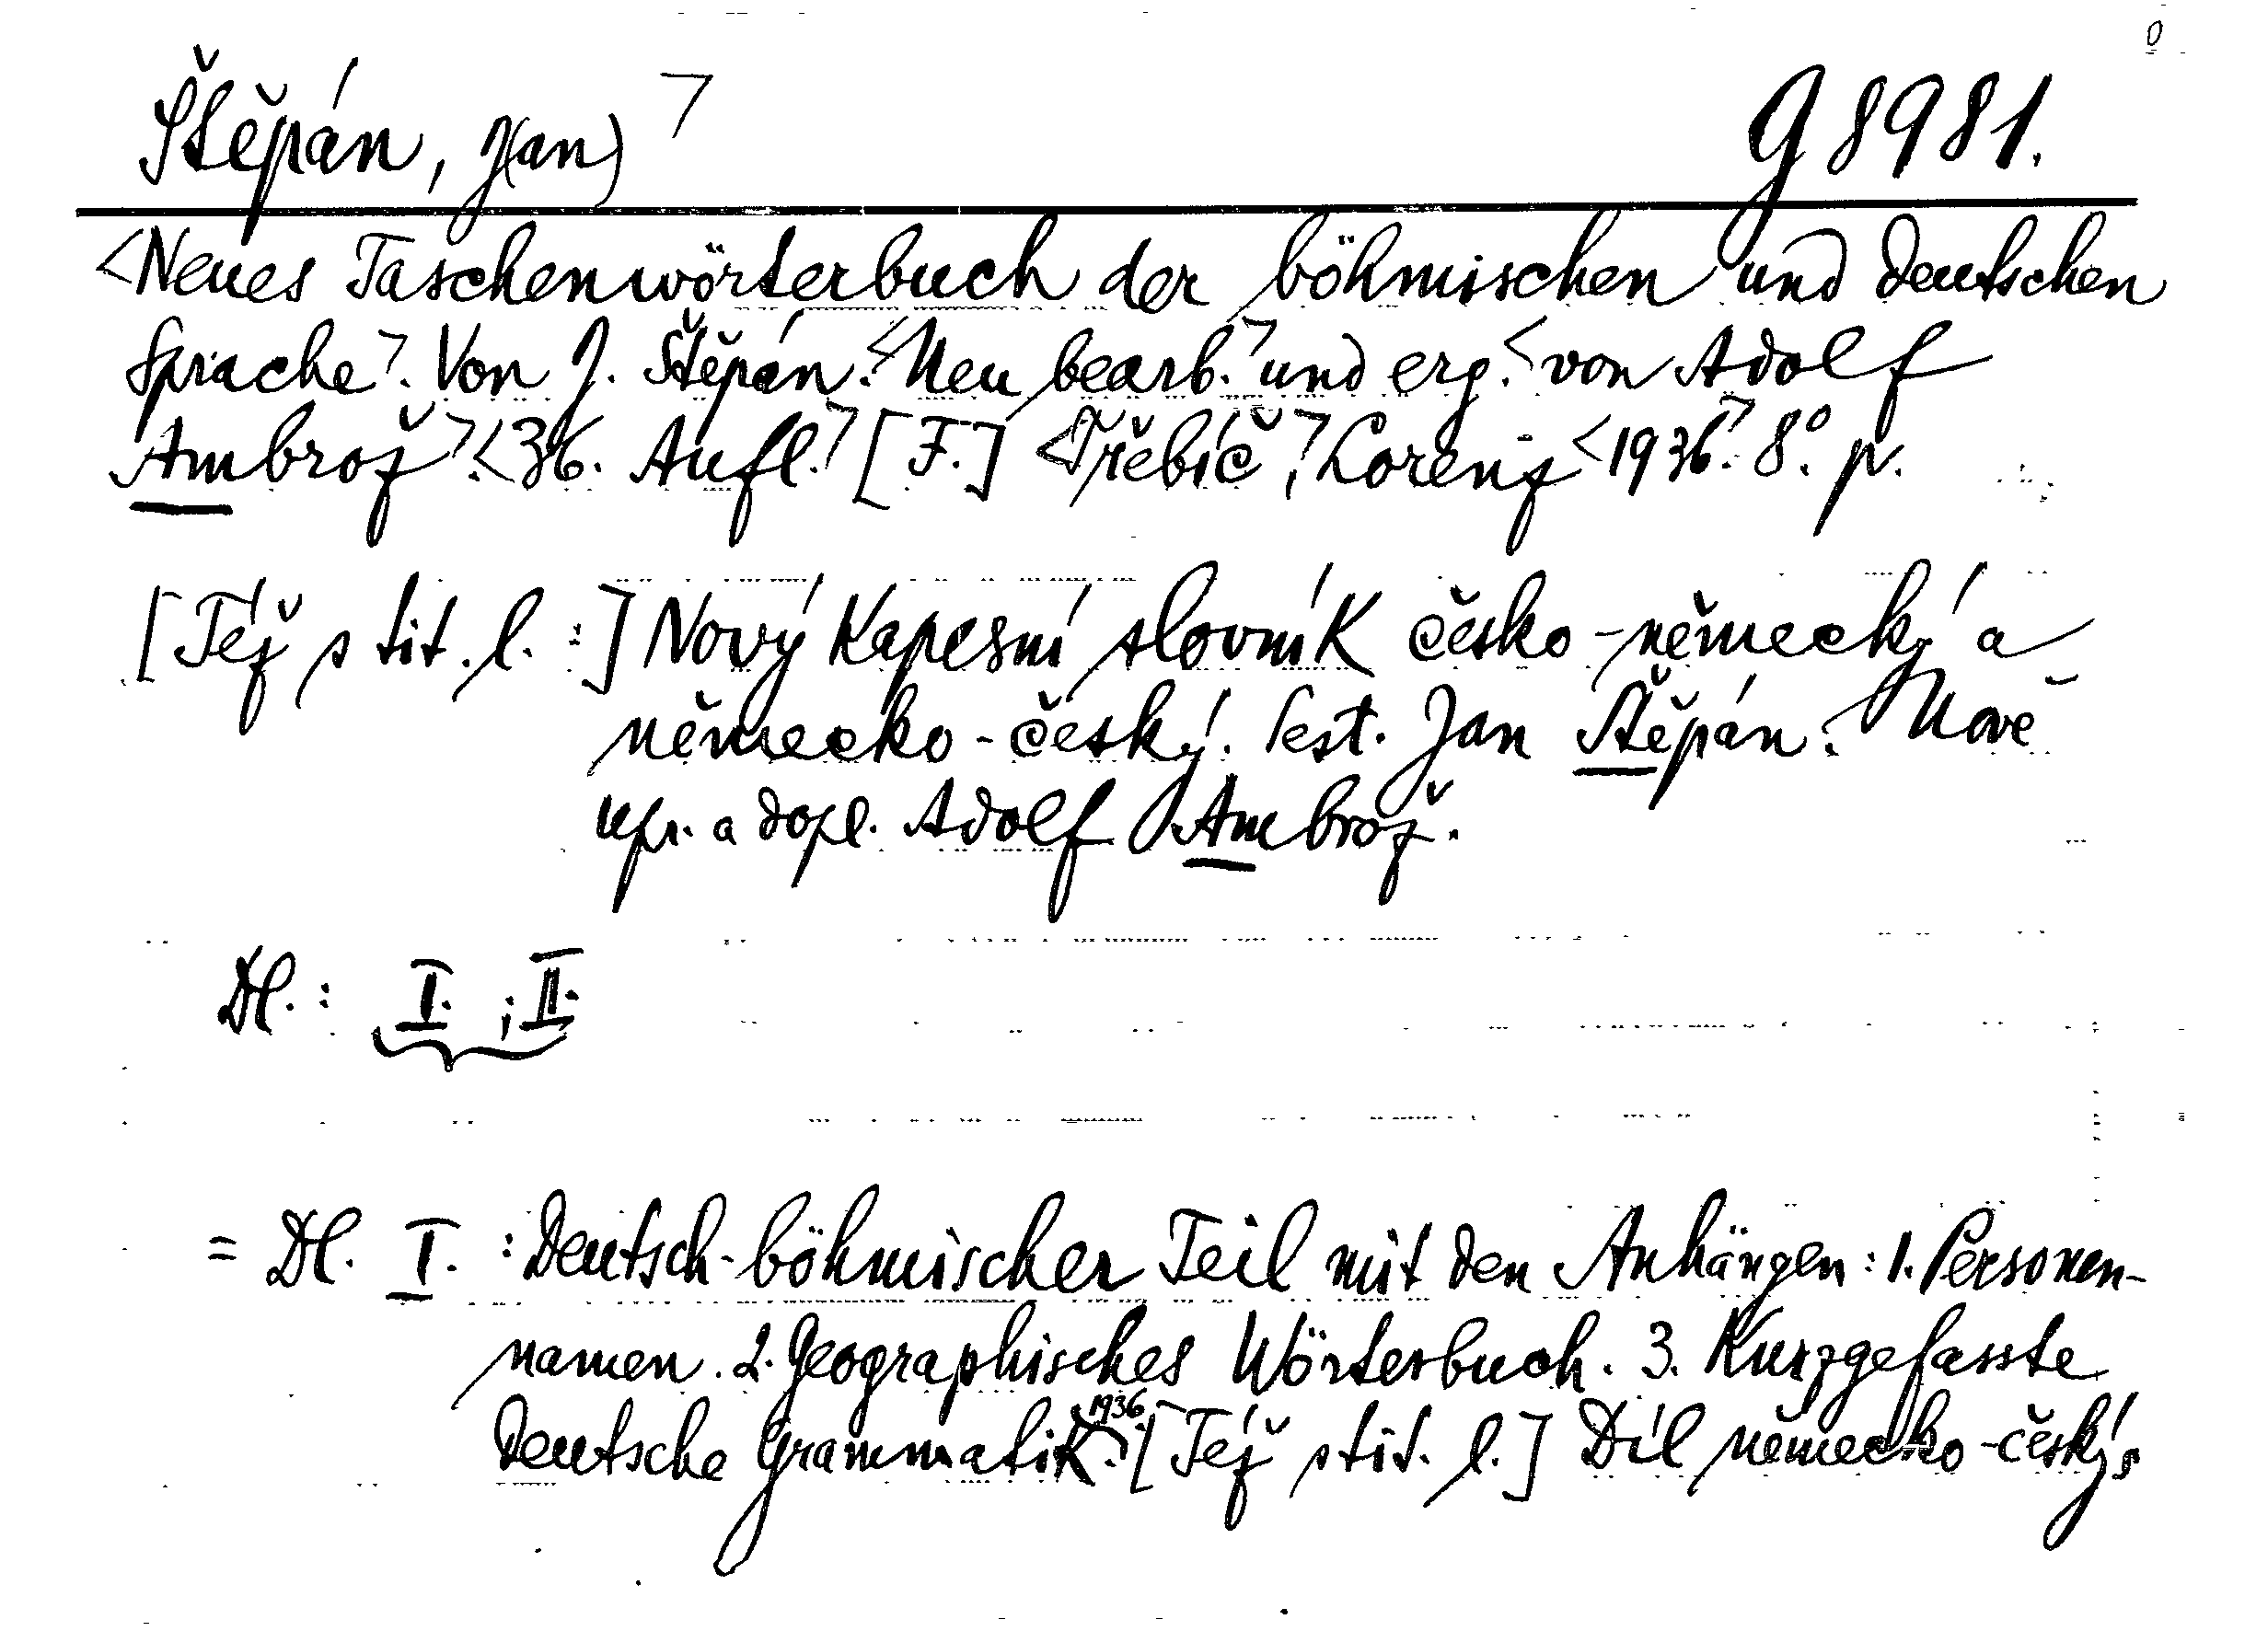 Štěpán, J(an) ┐ G 8981.
<Neues Taschenwörterbuch der böhmischen und deutschen
Sprache┐. Von J. Štěpán. <Neu bearb.┐ und erg. <von Adolf
Ambrož┐. <36. Aufl.┐ [F.] <Třebíč,┐ Lorenz <1936.┐ 8°. p.
[Též s tit. l.:] Nový kapesní slovník česko-německý a
německo-český. Sest. Jan Štěpán. Nově
upr. a dopl. Adolf Ambrož.
Dl.: I. ; II.
= Dl. I. : Deutsch-böhmischer Teil mit den Anhängen: 1. Personen-
namen. 2. Geographisches Wörterbuch. 3. Kurzgefasste
deutsche Grammatik. 1936. [Též s tit. l.] Díl německo-český s